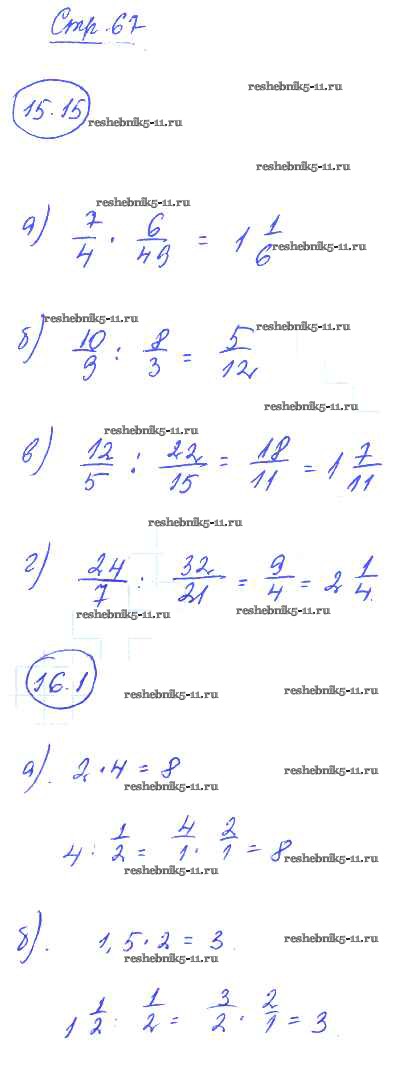 Стр. 67
reshebnik5-11.ru
15.15
reshebnik5-11.ru
reshebnik5-11.ru
reshebnik5-11.ru
а) 7/4 · 6/49 = 1 1/6
reshebnik5-11.ru
reshebnik5-11.ru
reshebnik5-11.ru
б) 10/9 : 8/3 = 5/12
reshebnik5-11.ru
reshebnik5-11.ru
в) 12/5 : 22/15 = 18/11 = 1 7/11
reshebnik5-11.ru
г) 24/7 : 32/21 = 9/4 = 2 1/4
reshebnik5-11.ru
reshebnik5-11.ru
16.1
reshebnik5-11.ru
reshebnik5-11.ru
а). 2 · 4 = 8
reshebnik5-11.ru
reshebnik5-11.ru
4 : 1/2 = 4/1 · 2/1 = 8
reshebnik5-11.ru
reshebnik5-11.ru
б). 1,5 · 2 = 3
reshebnik5-11.ru
reshebnik5-11.ru
1 1/2 : 1/2 = 3/2 · 2/1 = 3